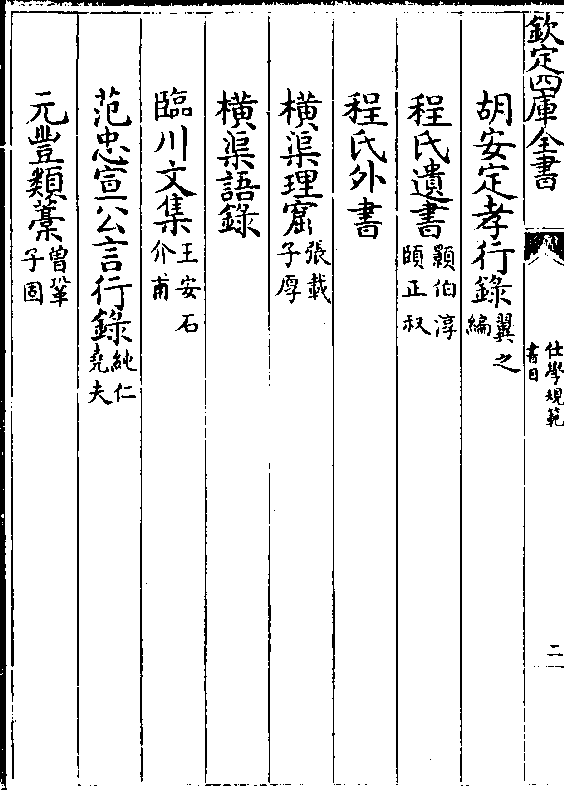 欽定四庫全書
仕學規範
書目
二
胡安定孝行錄翼之編
程氏遺書顥伯淳頤正叔
程氏外書
橫渠理窟張載子厚
橫渠語錄
臨川文集王安石介甫
范忠宣公言行錄純仁堯夫
元豐類藁曾鞏子固